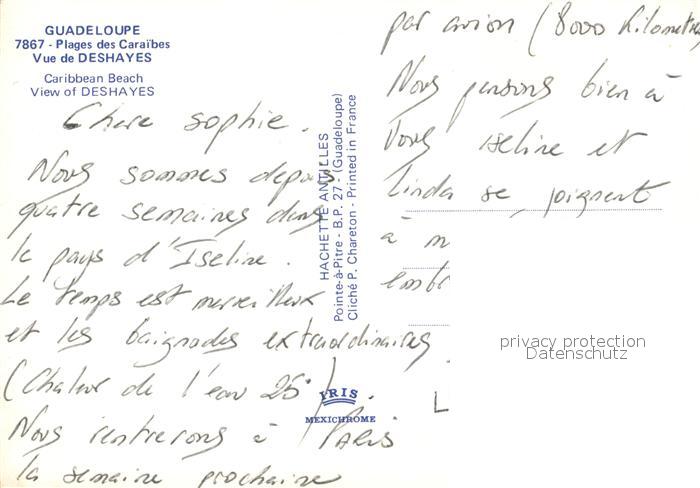 GUADELOUPE
7867 - Plages des Caraïbes
Vue de DESHAYES
Caribbean Beach
View of DESHAYES
Chere Sophie.
Nous sommes depuis
quatre semaines dans
le pays d'Iseline.
Le temps est merveilleux
et les baignades extraordinaires
(Chaleur de l'eau 26°).
Nous rentrerons à PARIS
la semaine prochaine
par avion (8000 kilometres
Nous pensons bien à
vous Iseline et
Linda se joignent
à
HACHETTE ANTILLES
Pointe-à-Pitre - B.P. 27 - (Guadeloupe)
Cliché P. Chareton - Printed in France
IRIS
MEXICHROME
privacy protection
Datenschutz